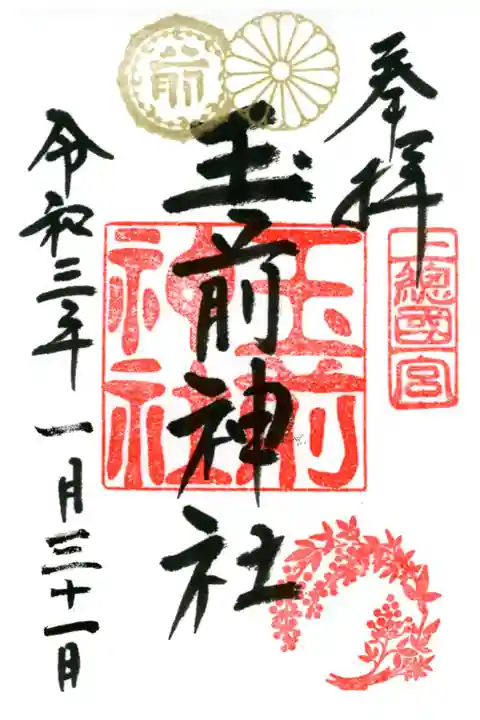 奉拝
上總國一宮
玉前神社
玉前神社
前
令和三年 一月三十一日